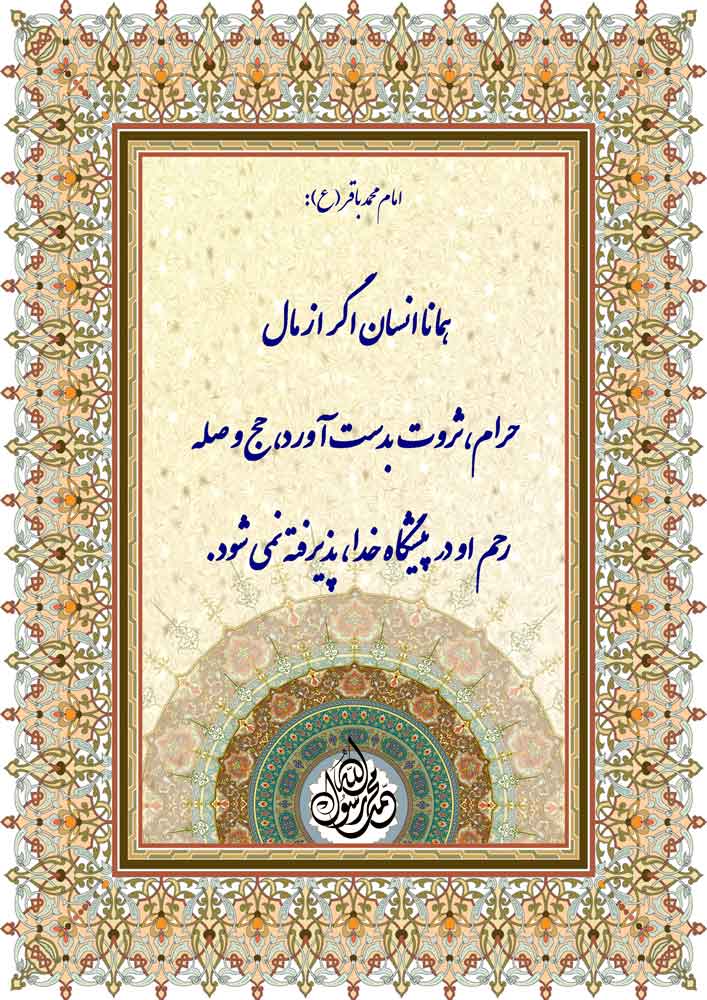 امام محمد باقر (ع):
همانا انسان اگر از مال
حرام، ثروت بدست آورد، حج و صله
رحم او در پیشگاه خدا، پذیرفته نمی شود.
محمد رسول الله